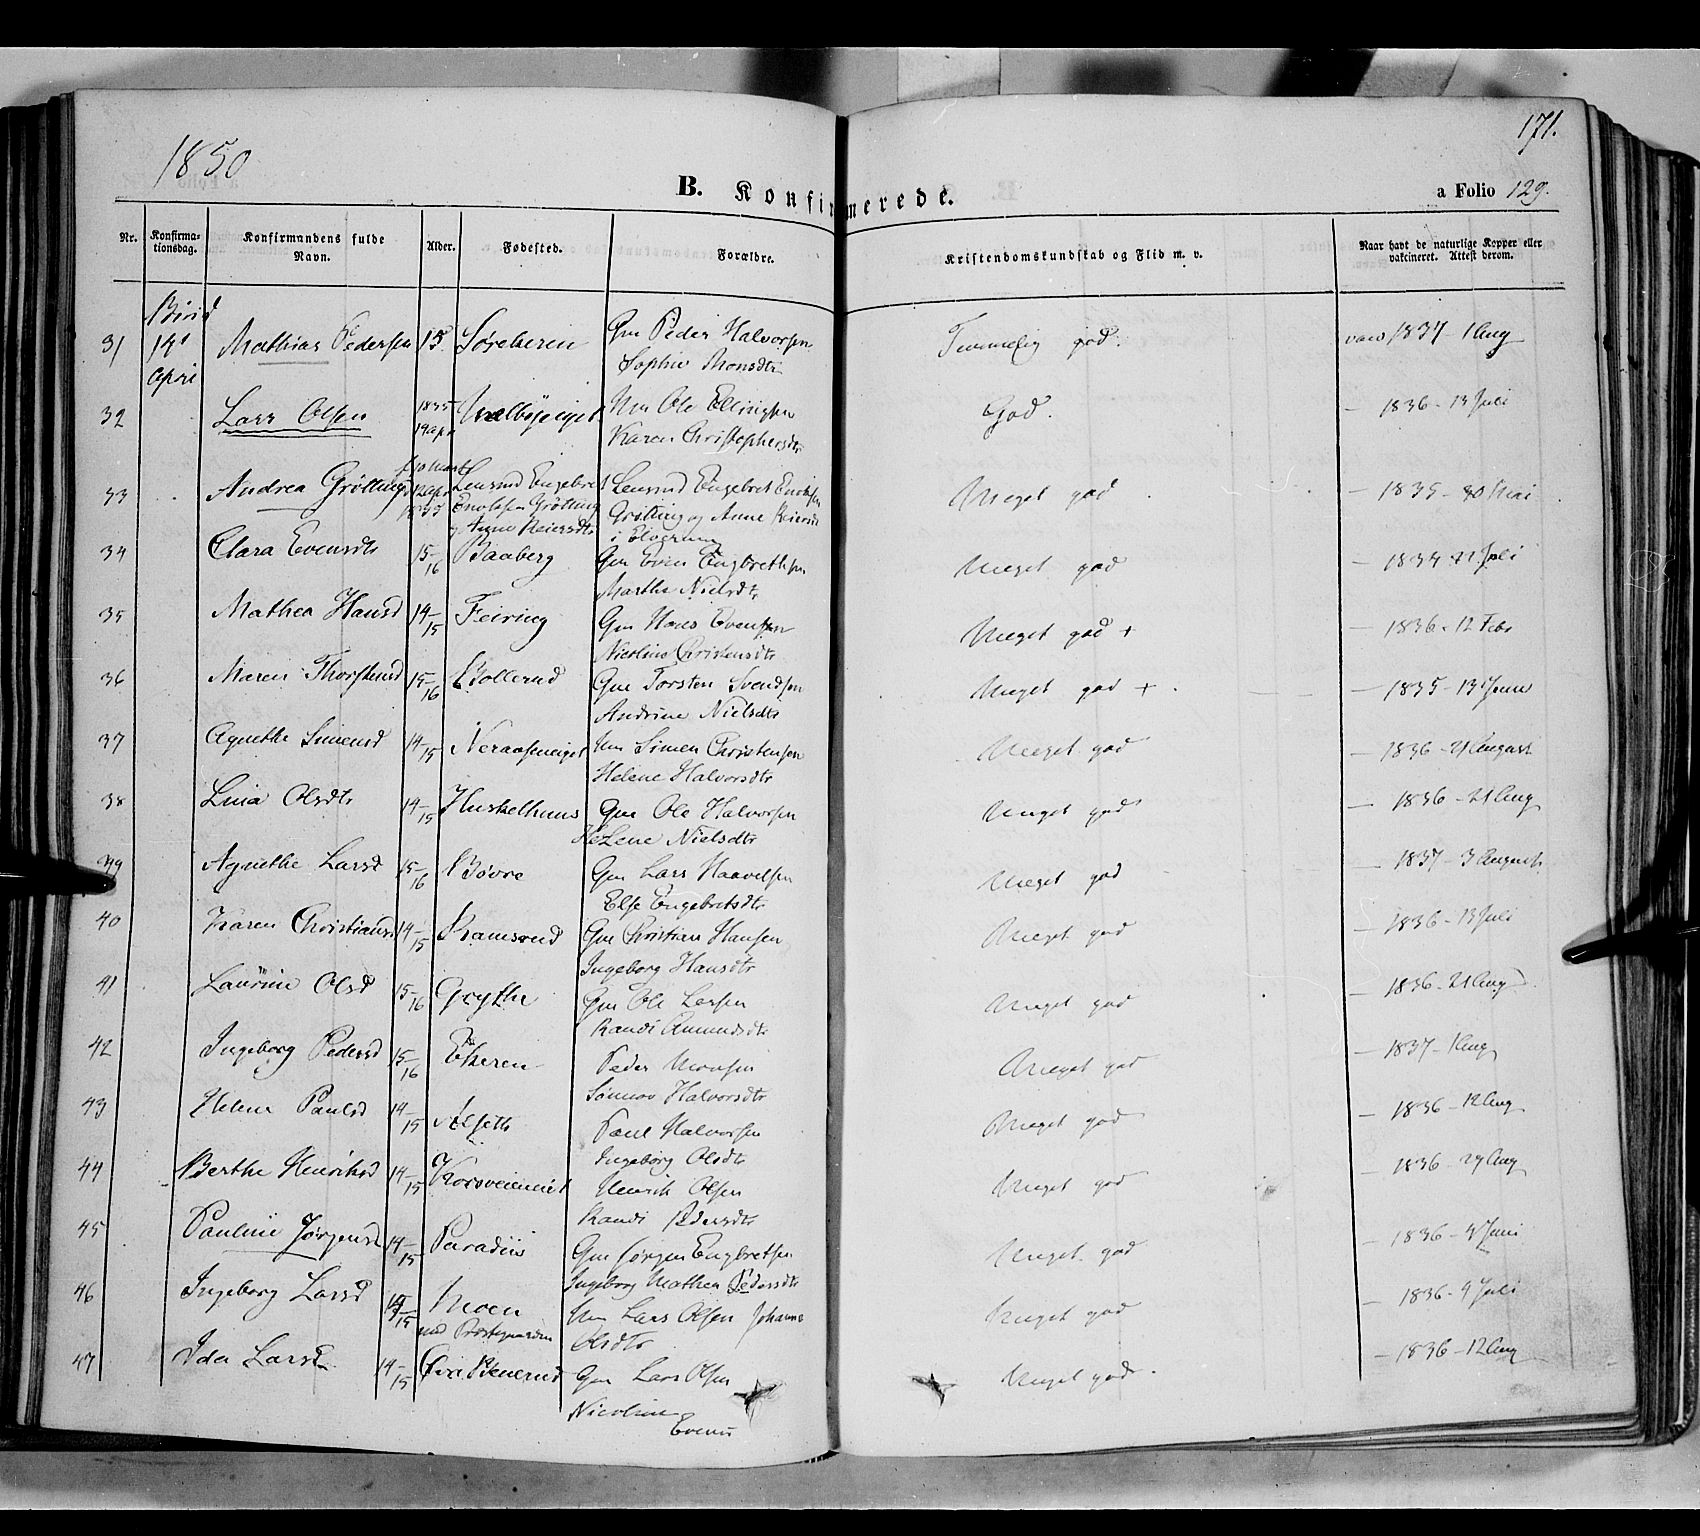 171.
1850
B. Konfirmerede.
a Folio 129.
Nr.
Konfirma-
tionsdag.
Konfirmandens fulde
Navn.
Alder.
Fødested.
Forældre.
Kristendomskundskab og Flid m. v.
Naar havt de naturlige Kopper eller
vakcineret. Attest derom.
Birid
31 14 Mathias Pedersen 15 Gm Peder Halvorsen Temmelig god. vacc 1837 - 1 Aug
April Sophie Monsdtr
32 Lars Olsen 1835 Um Ole Ellingsen God. — 1836 - 13 Juli
19 Apr Karen Christophersdtr
33 Andrea Grötting Lensmd Engebret Lensmd Engebret Meget god — 1835 - 30 Mai
Grötting Grötting og Anne
i Elverum
34 Clara Evensdtr 15-16 Baaberg Gm Even Engbrethsen Meget god — 1834 Juli
Marthe Nielsdtr
35 Mathea Hansd 14-15 Feiring Gm Hans Evensen Meget god + — 1836 - 12 Febr
Nicoline Christensdtr
36 Maren Thorstensd 15-16 Bollerud Gm Torsten Svendsen Meget god + — 1835 - 13 Juni
Andrine Nielsdtr
37 Agnethe Simensd 14-15 Neraaseneiet Um Simen Christensen Meget god — 1836 - 21 August
Helene Halvorsdtr
38 Lina Olsdtr 14-15 Huskelhuus Gm Ole Halvorsen Meget god — 1836 - 21 Aug
Helene Nielsdtr
39 Agnethe Larsd 15-16 Bøvre Gm Lars Haavelsen Meget god — 1837 - 3 August
Else Engebretsdtr
40 Karen Christiansd 14-15 Ramsrud Gm Christian Hansen Meget god — 1836 - 13 Juli
Ingeborg Hansdtr
41 Laurine Olsd 15-16 Grythe Gm Ole Larsen Meget god — 1836 - 21 Aug
Randi Amundsdtr
42 Ingeborg Pedersd 15-16 Ekeren Peder Monsen Meget god — 1837 - 1 Aug
Halvorsdtr
43 Helene Paulsd 14-15 Alseth Paul Halvorsen Meget god — 1836 - 12 Aug
Ingeborg Olsdtr
44 Berthe Henriksd 14-15 Korsveieneiet Henrik Olsen Meget god — 1836 - 29 Aug
Randi Pedersdtr
45 Pauline Jørgensd 14-15 Paradiis Gm Jørgen Engbretsen Meget god — 1836 - Juni
Ingeborg Mathea Pedersdtr
46 Ingeborg Larsd 15 Moen Um Lars Olsen Johanne Meget god — 1836 - 9 Juli
Olsdtr
47 Ida Larsd 14-15 Gm Lars Olsen Meget god. — 1836 - 12 Aug
Nicoline
Evensd